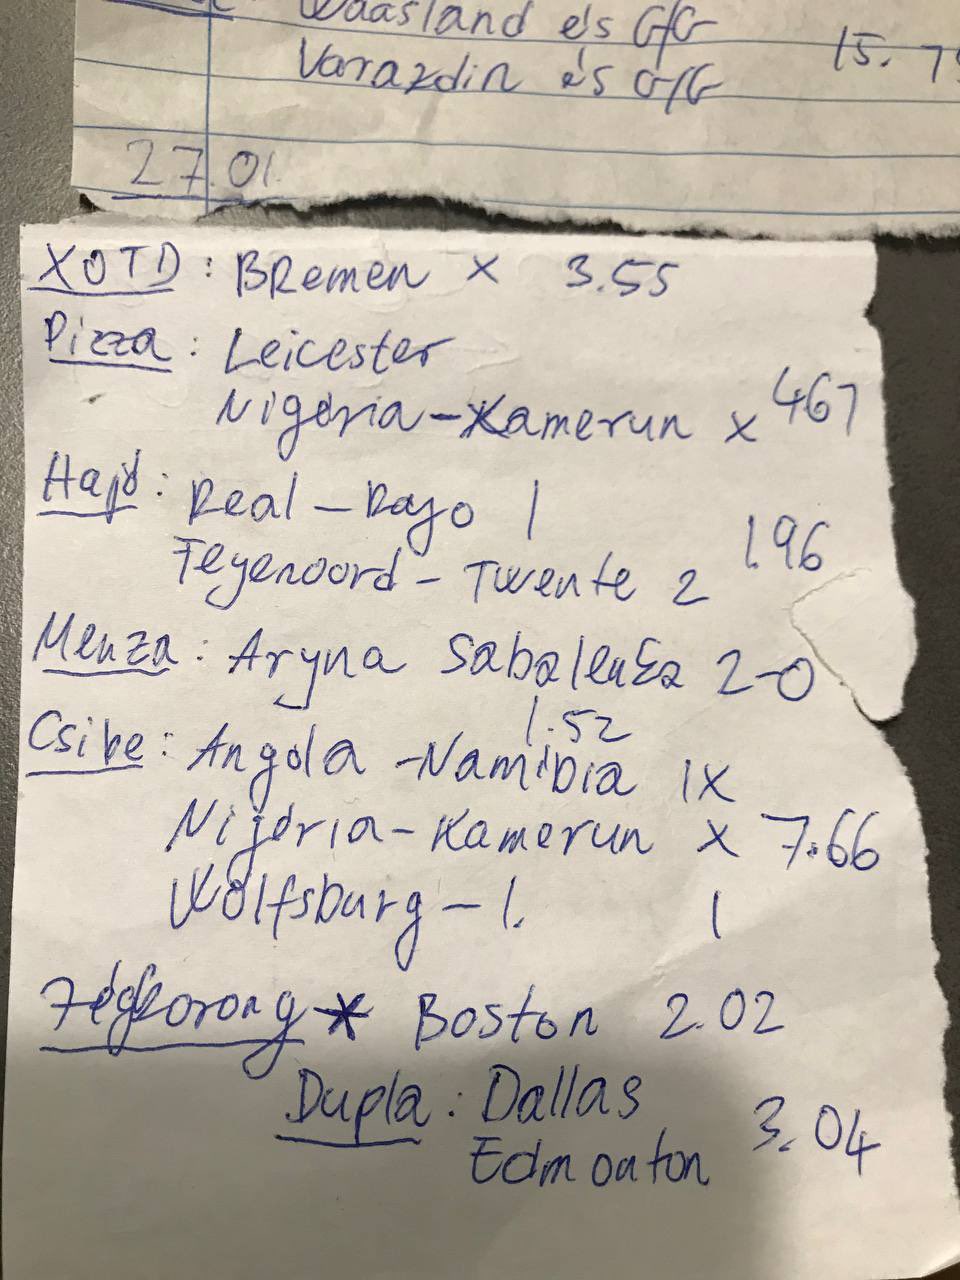 Waasland és G/G
Varazdin és G/G 15.7
27.01.
XOTD: BRemen x 3.55
Pizza: Leicester
Nigéria-Kamerun x 467
Hajó: Real - Rayo 1
Feyenoord - Twente 2 1.96
Menza: Aryna Sabalenka 2-0
1.52
Csibe: Angola - Namibia 1X
Nijéria-Kamerun x 7.66
Wolfsburg - 1. 1
Jégkorong * Boston 2.02
Dupla: Dallas
Edmonton 3.04